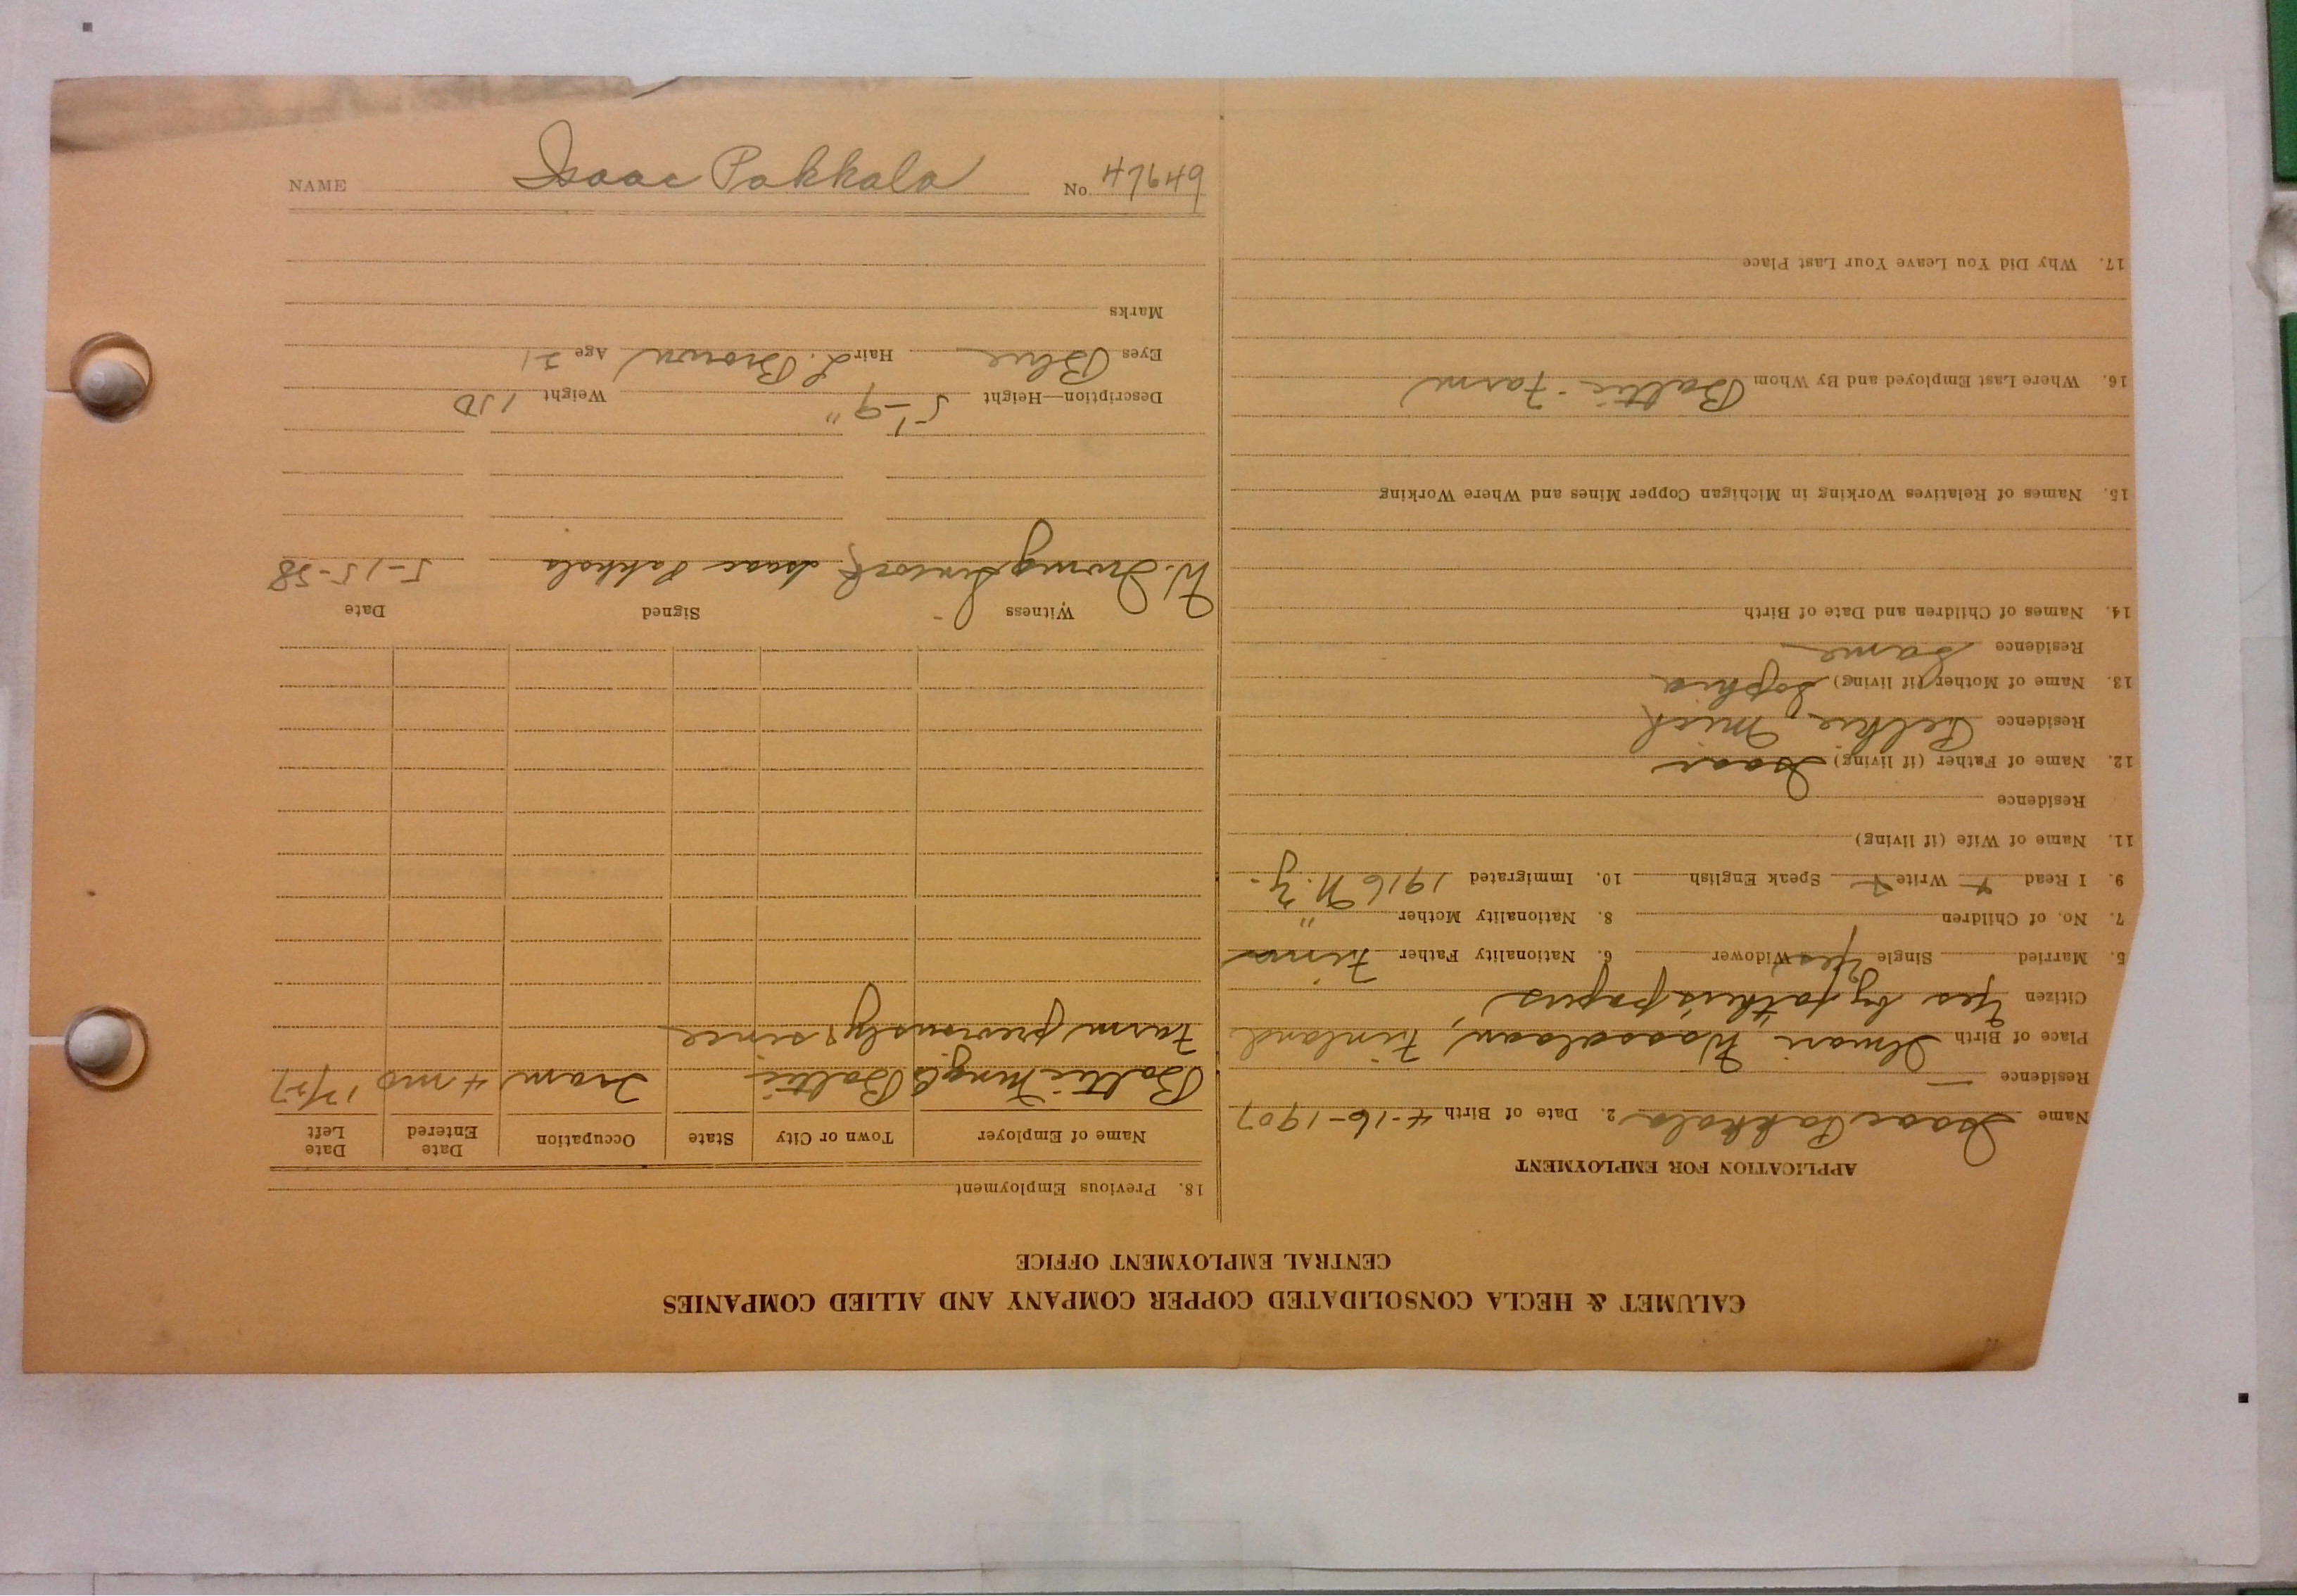 NAME Isaac Pakkala No. 47649
CALUMET & HECLA CONSOLIDATED COPPER COMPANY AND ALLIED COMPANIES
CENTRAL EMPLOYMENT OFFICE
APPLICATION FOR EMPLOYMENT
Name Isaac Pakkala 2. Date of Birth 4-16-1907
Residence —
Place of Birth Ilmari Waasalaan, Finland
Citizen Yes by father's papers
5. Married Single Yes Widower 6. Nationality Father Finn
7. No. of Children 8. Nationality Mother "
9. I Read + Write + Speak English 10. Immigrated 1916 N.Y.
11. Name of Wife (if living)
Residence
12. Name of Father (if living) Isaac
Residence Pelkie, Mich
13. Name of Mother (if living) Sophia
Residence Same
14. Names of Children and Date of Birth
15. Names of Relatives Working in Michigan Copper Mines and Where Working
16. Where Last Employed and By Whom Baltic - Farm
17. Why Did You Leave Your Last Place
18. Previous Employment
Name of Employer Town or City State Occupation Date Entered Date Left
Baltic Mng Co Baltic Tram 4 mo
Farm previously & since
Witness Signed Date
W. Isaac Pakkala 5-15-28
Description—Height 5'-9" Weight 150
Eyes Blue Hair L. Brown Age 21
Marks